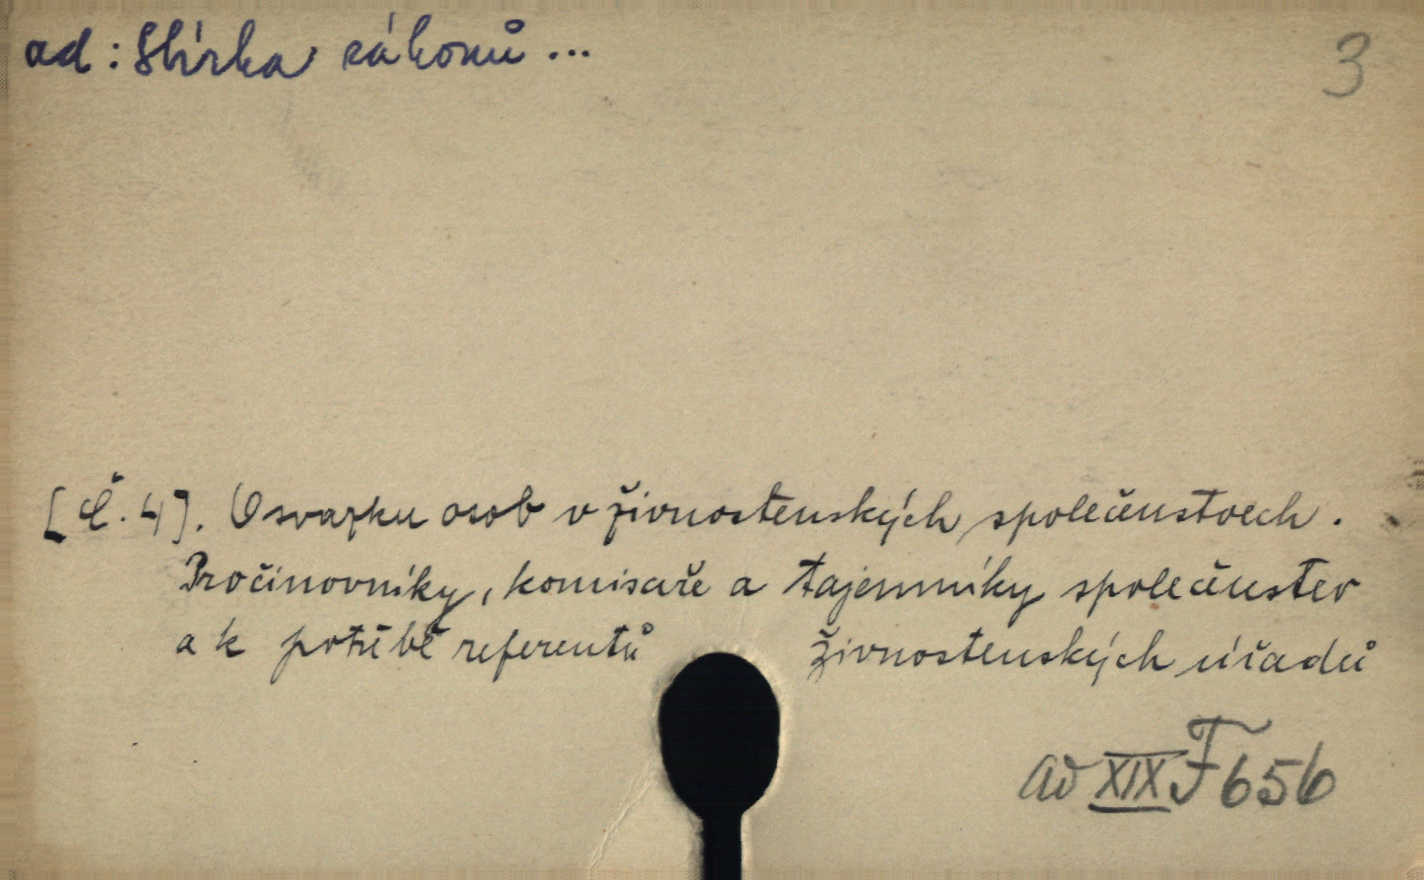 ad: Sbírka zákonů ...
3
[Č. 4]. O svazku osob v živnostenských společenstvech.
Pro činovníky, komisaře a tajemníky společenstev
a k potřebě referentů živnostenských úřadů
ad XIX F 656